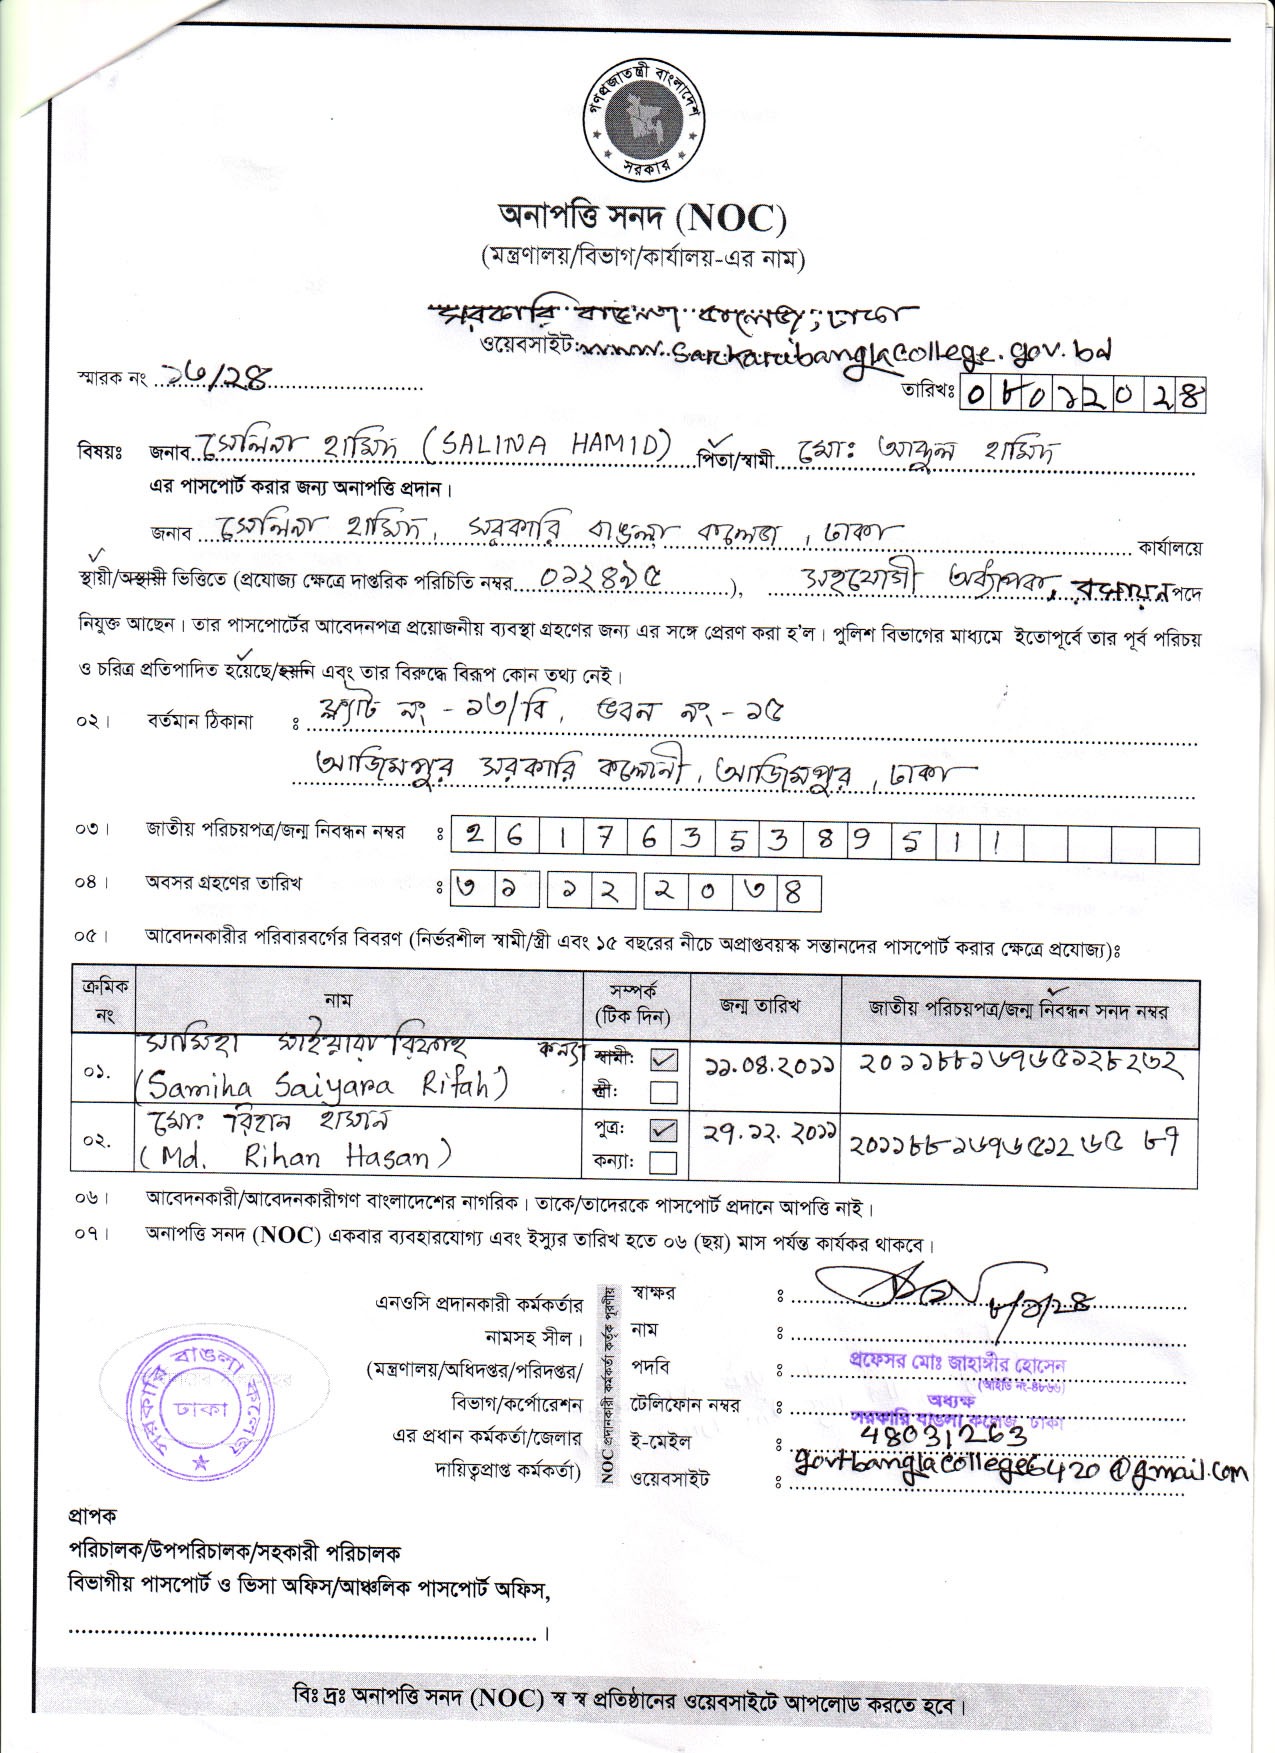 গণপ্রজাতন্ত্রী বাংলাদেশ
সরকার
অনাপত্তি সনদ (NOC)
(মন্ত্রণালয়/বিভাগ/কার্যালয়-এর নাম)
সরকারি বাঙলা কলেজ, ঢাকা
ওয়েবসাইট: www.sarkaribanglacollege.gov.bd
স্মারক নং ১৬/২৪
তারিখঃ ০৮০১২০২৪
বিষয়ঃ জনাব সেলিনা হামিদ (SALINA HAMID) পিতা/স্বামী মোঃ আব্দুল হামিদ
এর পাসপোর্ট করার জন্য অনাপত্তি প্রদান।
জনাব সেলিনা হামিদ, সরকারি বাঙলা কলেজ, ঢাকা কার্যালয়ে
স্থায়ী/অস্থায়ী ভিত্তিতে (প্রযোজ্য ক্ষেত্রে দাপ্তরিক পরিচিতি নম্বর ০১২৪৯৫), সহযোগী অধ্যাপক, রসায়ন পদে
নিযুক্ত আছেন। তার পাসপোর্টের আবেদনপত্র প্রয়োজনীয় ব্যবস্থা গ্রহণের জন্য এর সঙ্গে প্রেরণ করা হ'ল। পুলিশ বিভাগের মাধ্যমে ইতোপূর্বে তার পূর্ব পরিচয়
ও চরিত্র প্রতিপাদিত হয়েছে/হয়নি এবং তার বিরুদ্ধে বিরূপ কোন তথ্য নেই।
০২। বর্তমান ঠিকানা : ফ্ল্যাট নং - ১৩/বি, ভবন নং - ১৫
আজিমপুর সরকারি কলোনী, আজিমপুর, ঢাকা
০৩। জাতীয় পরিচয়পত্র/জন্ম নিবন্ধন নম্বর : 2617635389511
০৪। অবসর গ্রহণের তারিখ : ৩১ ১২ ২০৩৪
০৫। আবেদনকারীর পরিবারবর্গের বিবরণ (নির্ভরশীল স্বামী/স্ত্রী এবং ১৫ বছরের নীচে অপ্রাপ্তবয়স্ক সন্তানদের পাসপোর্ট করার ক্ষেত্রে প্রযোজ্য)ঃ
ক্রমিক নং নাম সম্পর্ক (টিক দিন) জন্ম তারিখ জাতীয় পরিচয়পত্র/জন্ম নিবন্ধন সনদ নম্বর
০১. সামিহা সাইয়ারা রিফাহ কন্যা স্বামী: ✓ ১১.০৪.২০১১ ২০১১৮৮১৬৭৬৫১২৮২৬২
(Samiha Saiyara Rifah) স্ত্রী:
০২. মো: রিহান হাসান পুত্র: ✓ ২৭.১২.২০১১ ২০১১৮৮১৬৭৬৫১২৬৫৮৭
(Md. Rihan Hasan) কন্যা:
০৬। আবেদনকারী/আবেদনকারীগণ বাংলাদেশের নাগরিক। তাকে/তাদেরকে পাসপোর্ট প্রদানে আপত্তি নাই।
০৭। অনাপত্তি সনদ (NOC) একবার ব্যবহারযোগ্য এবং ইস্যুর তারিখ হতে ০৬ (ছয়) মাস পর্যন্ত কার্যকর থাকবে।
এনওসি প্রদানকারী কর্মকর্তার
নামসহ সীল।
(মন্ত্রণালয়/অধিদপ্তর/পরিদপ্তর/
বিভাগ/কর্পোরেশন
এর প্রধান কর্মকর্তা/জেলার
দায়িত্বপ্রাপ্ত কর্মকর্তা)
NOC প্রদানকারী কর্মকর্তা কর্তৃক পূরণীয়
স্বাক্ষর : ৮/১/২৪
নাম :
পদবি : প্রফেসর মোঃ জাহাঙ্গীর হোসেন
(আইডি নং-৪৮৬৬)
টেলিফোন নম্বর : অধ্যক্ষ
সরকারি বাঙলা কলেজ, ঢাকা
ই-মেইল : 48031263
ওয়েবসাইট : govtbanglacollege6420@gmail.com
সরকারি বাঙলা কলেজ
ঢাকা
প্রাপক
পরিচালক/উপপরিচালক/সহকারী পরিচালক
বিভাগীয় পাসপোর্ট ও ভিসা অফিস/আঞ্চলিক পাসপোর্ট অফিস,
।
বিঃ দ্রঃ অনাপত্তি সনদ (NOC) স্ব স্ব প্রতিষ্ঠানের ওয়েবসাইটে আপলোড করতে হবে।